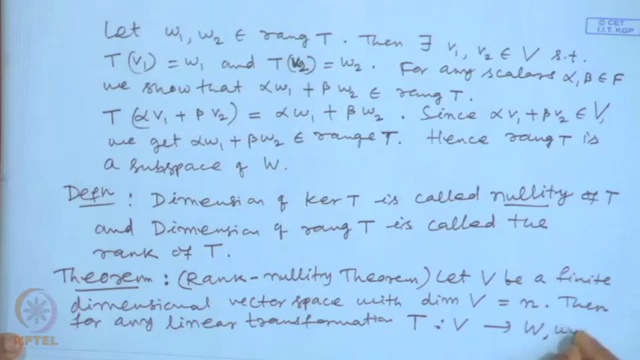 © CET
I.I.T. KGP
Let w₁, w₂ ∈ rang T. Then ∃ v₁, v₂ ∈ V s.t.
T(v₁) = w₁ and T(v₂) = w₂. For any scalars α, β ∈ F
we show that αw₁ + βw₂ ∈ rang T.
T(αv₁ + βv₂) = αw₁ + βw₂. Since αv₁ + βv₂ ∈ V,
we get αw₁ + βw₂ ∈ range T. Hence rang T is
a subspace of W.
Defn : Dimension of ker T is called nullity of T
and Dimension of rang T is called the
rank of T.
Theorem : (Rank-nullity Theorem) Let V be a finite
dimensional vector space with dim V = n. Then
for any linear transformation T : V → W,
NPTEL